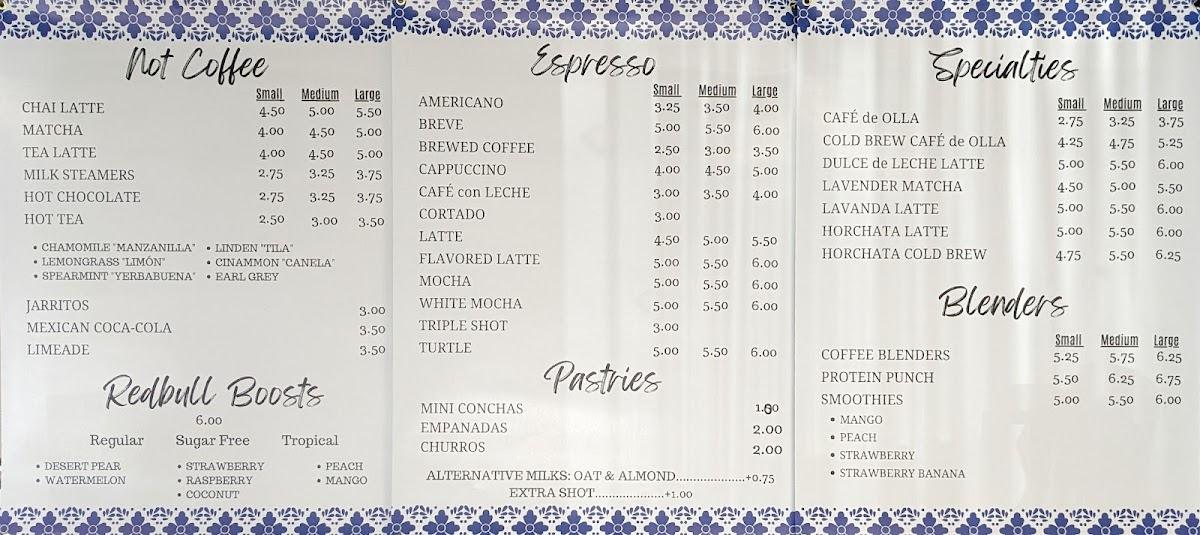 Not Coffee
Small Medium Large
CHAI LATTE 4.50 5.00 5.50
MATCHA 4.00 4.50 5.00
TEA LATTE 4.00 4.50 5.00
MILK STEAMERS 2.75 3.25 3.75
HOT CHOCOLATE 2.75 3.25 3.75
HOT TEA 2.50 3.00 3.50
• CHAMOMILE "MANZANILLA" • LINDEN "TILA"
• LEMONGRASS "LIMÓN" • CINAMMON "CANELA"
• SPEARMINT "YERBABUENA" • EARL GREY
JARRITOS 3.00
MEXICAN COCA-COLA 3.50
LIMEADE 3.50
Redbull Boosts
6.00
Regular Sugar Free Tropical
• DESERT PEAR • STRAWBERRY • PEACH
• WATERMELON • RASPBERRY • MANGO
• COCONUT
Espresso
Small Medium Large
AMERICANO 3.25 3.50 4.00
BREVE 5.00 5.50 6.00
BREWED COFFEE 2.50 3.00 3.50
CAPPUCCINO 4.00 4.50 5.00
CAFÉ con LECHE 3.00 3.50 4.00
CORTADO 3.00
LATTE 4.50 5.00 5.50
FLAVORED LATTE 5.00 5.50 6.00
MOCHA 5.00 5.50 6.00
WHITE MOCHA 5.00 5.50 6.00
TRIPLE SHOT 3.00
TURTLE 5.00 5.50 6.00
Pastries
MINI CONCHAS
EMPANADAS 2.00
CHURROS 2.00
ALTERNATIVE MILKS: OAT & ALMOND.....................+0.75
EXTRA SHOT.....................+1.00
Specialties
Small Medium Large
CAFÉ de OLLA 2.75 3.25 3.75
COLD BREW CAFÉ de OLLA 4.25 4.75 5.25
DULCE de LECHE LATTE 5.00 5.50 6.00
LAVENDER MATCHA 4.50 5.00 5.50
LAVANDA LATTE 5.00 5.50 6.00
HORCHATA LATTE 5.00 5.50 6.00
HORCHATA COLD BREW 4.75 5.50 6.25
Blenders
Small Medium Large
COFFEE BLENDERS 5.25 5.75 6.25
PROTEIN PUNCH 5.50 6.25 6.75
SMOOTHIES 5.00 5.50 6.00
• MANGO
• PEACH
• STRAWBERRY
• STRAWBERRY BANANA